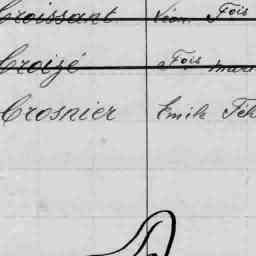 Croissant Léon Fois
Croizé Fois
Crosnier Emile